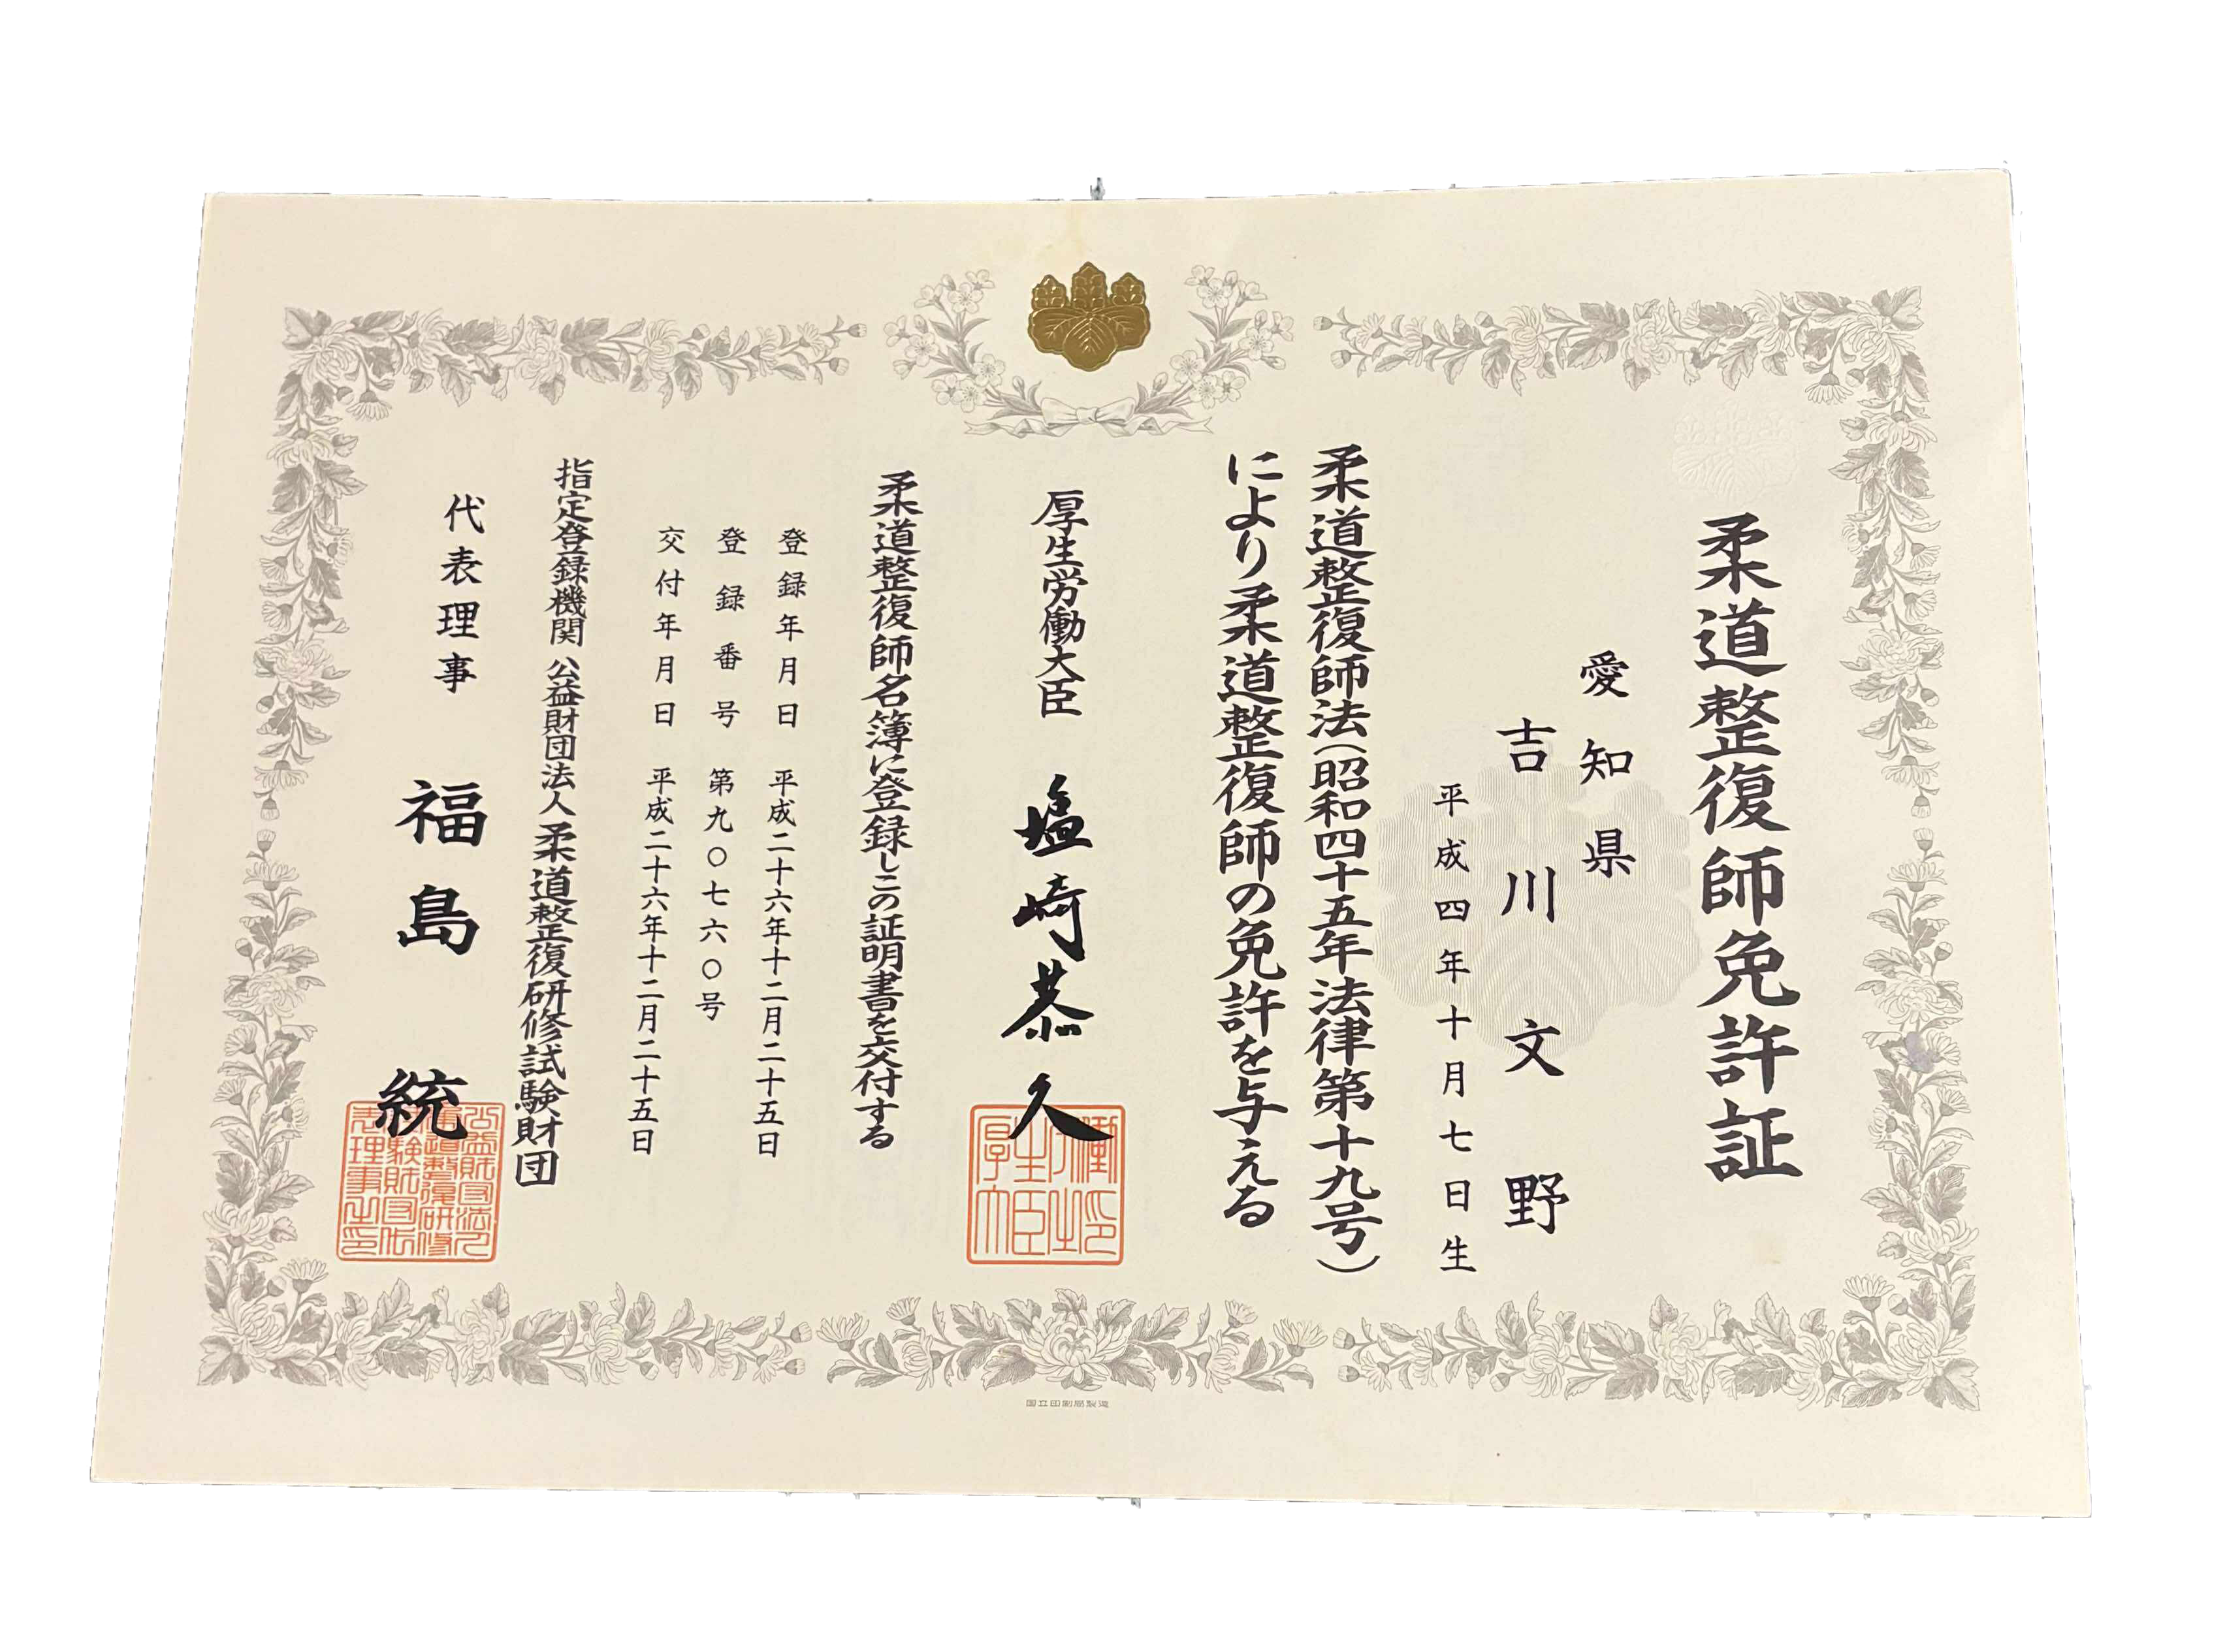 柔道整復師免許証
愛知県
吉川文野
平成四年十月七日生
柔道整復師法(昭和四十五年法律第十九号)
により柔道整復師の免許を与える
厚生労働大臣 塩崎恭久
柔道整復師名簿に登録しこの証明書を交付する
登録年月日 平成二十六年十二月二十五日
登録番号 第九〇七六〇号
交付年月日 平成二十六年十二月二十五日
指定登録機関 公益財団法人 柔道整復研修試験財団
代表理事 福島 統
国立印刷局製造